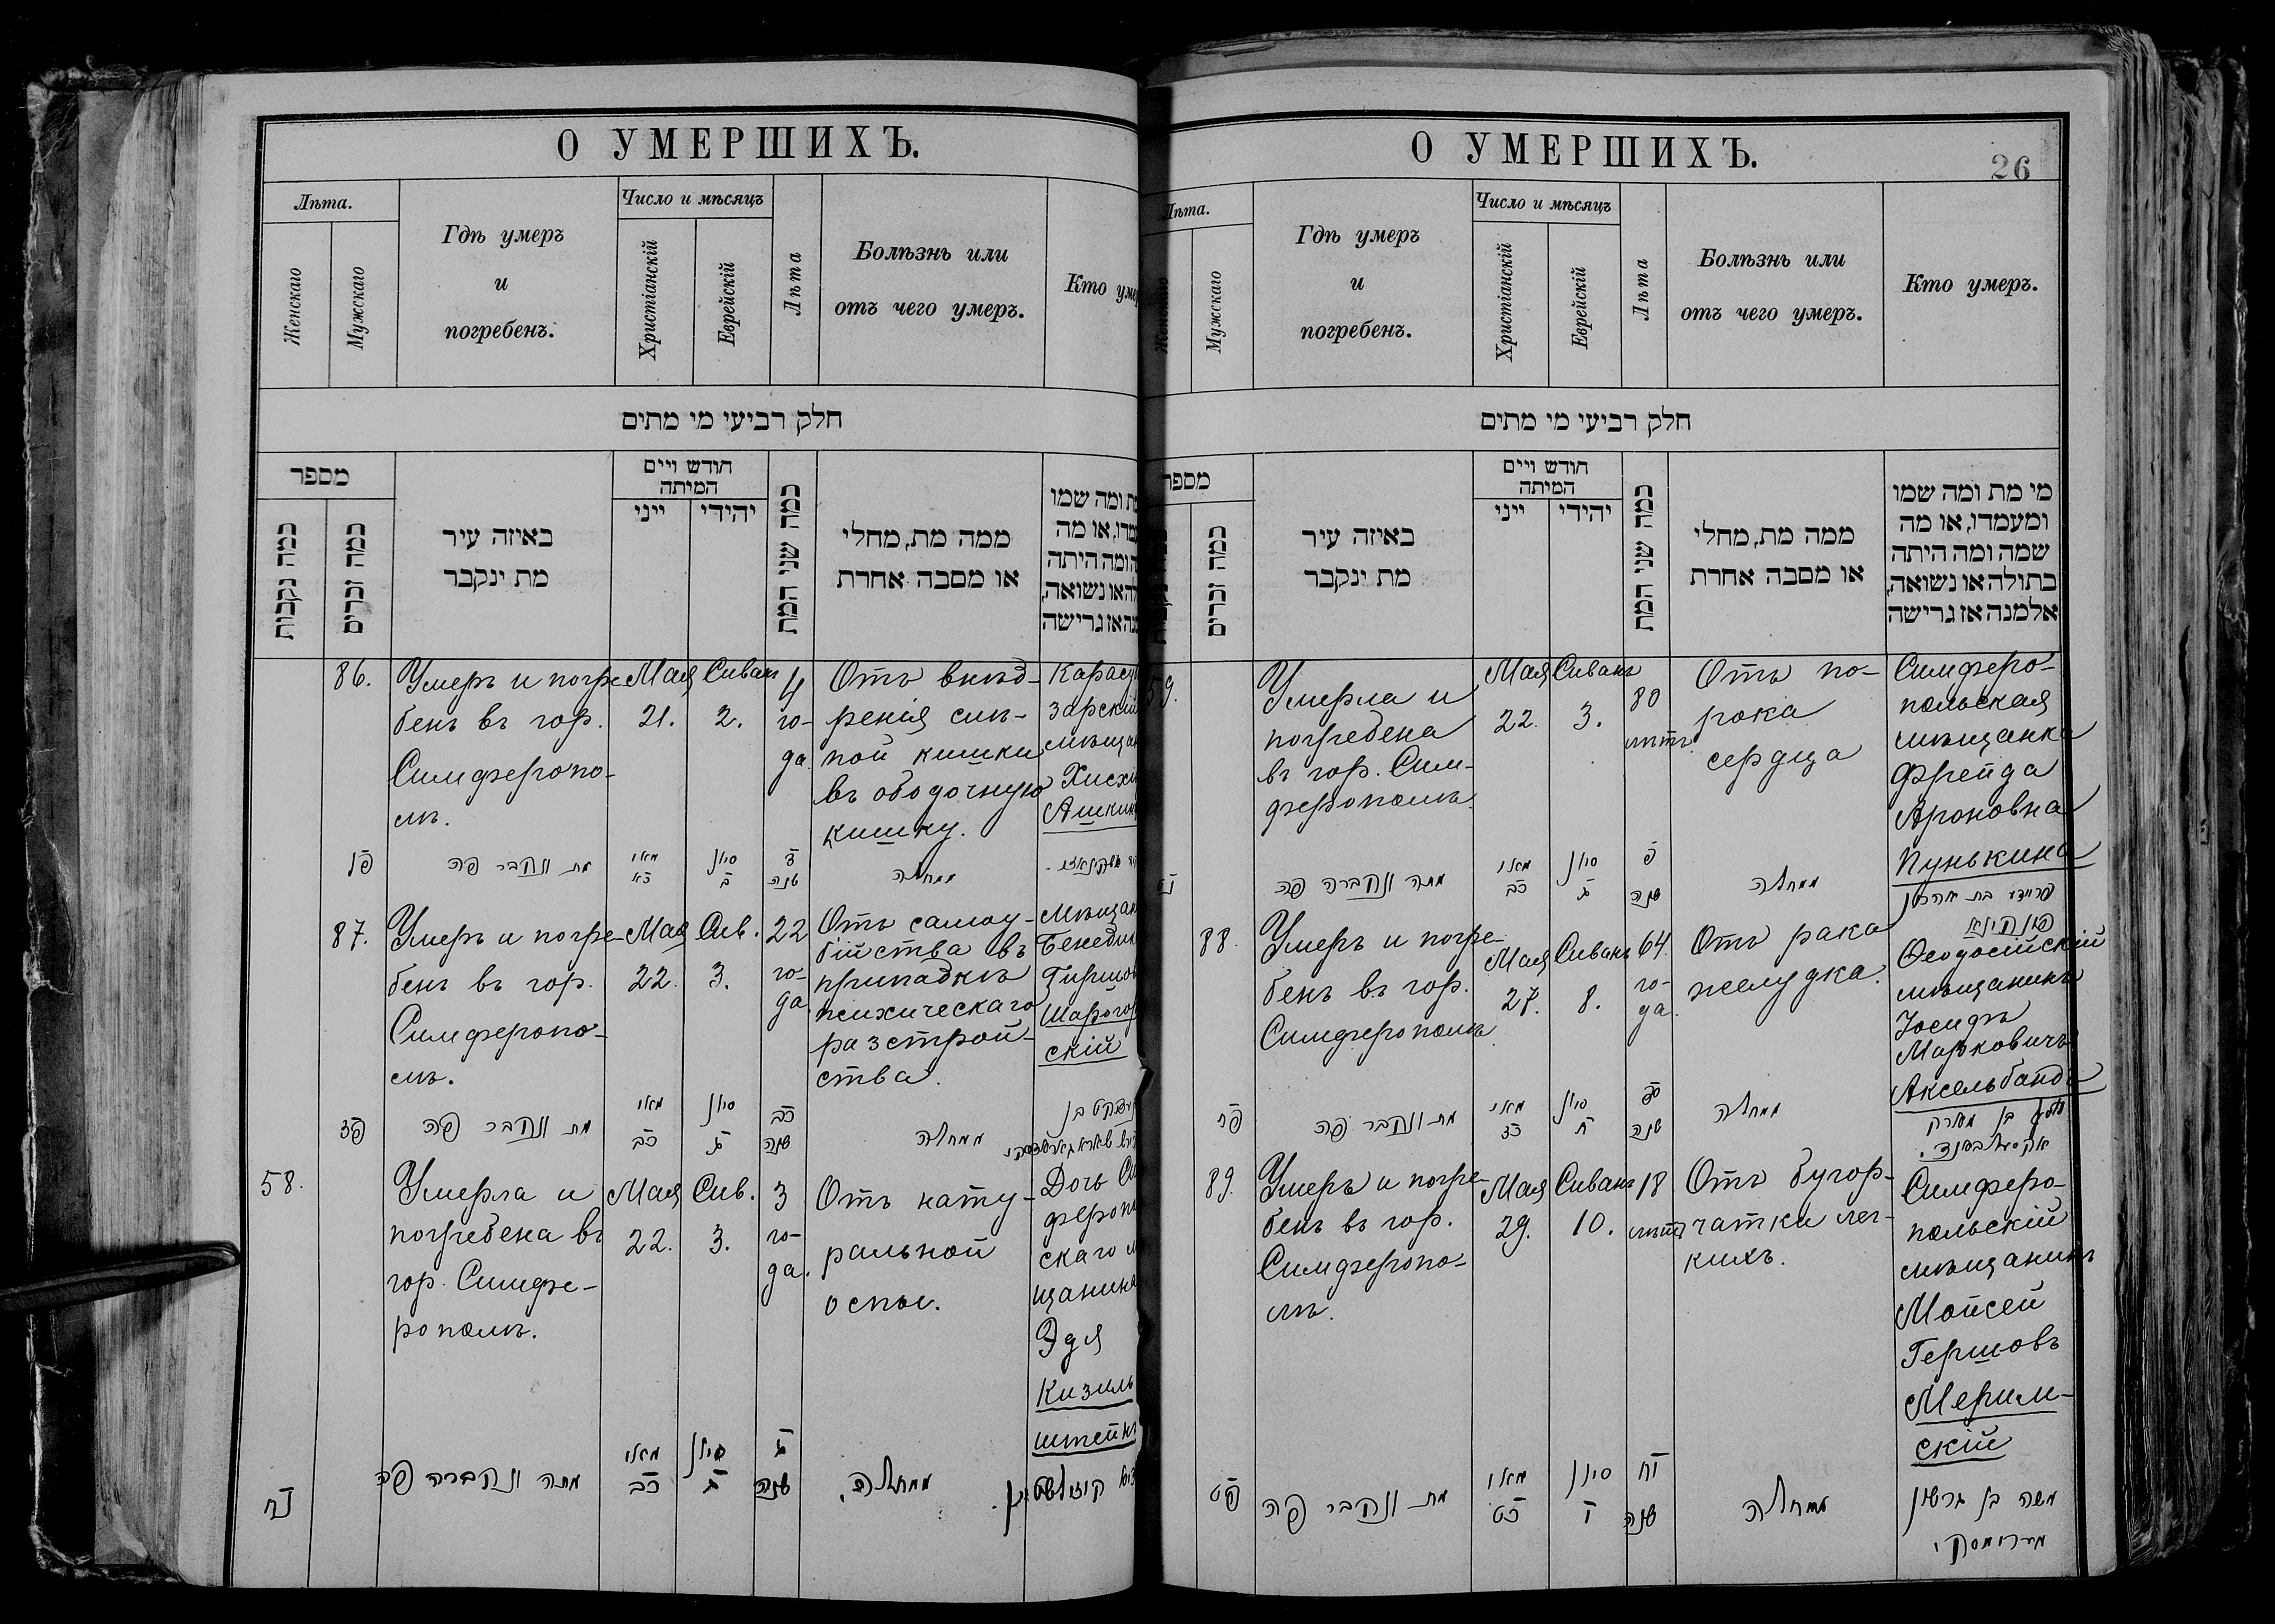 О УМЕРШИХЪ.
Лѣта.
Женскаго
Мужскаго
Гдѣ умеръ
и
погребенъ.
Число и мѣсяцъ
Христіанскій
Еврейскій
Лѣта
Болѣзнь или
отъ чего умеръ.
Кто умер
חלק רביעי מי מתים
מספר
כמה נקבות
כמה זכרים
באיזה עיר
מת ינקבר
חודש ויים
המיתה
ייני
יהידי
כמה שני המת
ממה מת, מחלי
או מסבה אחרת
ת ומה שמו
עמדו, או מה
הומה היתה
להאו נשואה,
נהאז גרישה
86.
Умеръ и погре
бенъ въ гор.
Симферопо-
лѣ.
Мая
21.
Сиванъ
2.
4
го-
да.
Отъ внѣд-
ренія слѣ-
пой кишки
въ ободочную
кишку.
Карасу
зарскій
мѣщан
Хисхі
Ашкин
פו
מת ונקבר פה
מאי
כא
סיון
ב
ד
שנה
ממחלה
87.
Умеръ и погре-
бенъ въ гор.
Симферопо-
лѣ.
Мая
22.
Сив.
3.
22
го-
да.
Отъ самоу-
бійства въ
припадкѣ
психическаго
разстрой-
ства.
Мѣщан
Бенеди
Гиршов
Шарогор
скій
פז
מת ונקבר פה
מאי
כב
סיון
ג
כב
שנה
ממחלה
58.
Умерла и
погребена въ
гор. Симфе-
рополѣ.
Мая
22.
Сив.
3.
3
го-
да.
Отъ нату-
ральной
оспы.
Дочь Си
феропо
скаго м
щанина
Эдя
Кизиль
штейнъ
נח
מתה ונקברה פה
מאי
כב
סיון
ג
ג
שנה
ממחלה.
О УМЕРШИХЪ.
26
Лѣта.
Женскаго
Мужскаго
Гдѣ умеръ
и
погребенъ.
Число и мѣсяцъ
Христіанскій
Еврейскій
Лѣта
Болѣзнь или
отъ чего умеръ.
Кто умеръ.
חלק רביעי מי מתים
מספר
כמה זכרים
באיזה עיר
מת ינקבר
חודש ויים
המיתה
ייני
יהידי
כמה שני המת
ממה מת, מחלי
או מסבה אחרת
מי מת ומה שמו
ומעמדו, או מה
שמה ומה היתה
בתולה או נשואה,
אלמנה אז גרישה
59.
Умерла и
погребена
въ гор. Сим-
ферополѣ.
Мая
22.
Сиванъ
3.
80
лѣтъ.
Отъ по-
рока
сердца
Симферо-
польская
мѣщанка
Фрейда
Ароновна
Пунькина
נט
מתה ונקברה פה
מאי
כב
סיון
ג
פ
שנה
ממחלה
פריידא בת אהרן
פונקינא
88.
Умеръ и погре-
бенъ въ гор.
Симферополѣ.
Мая
27.
Сиванъ
8.
64.
го-
да.
Отъ рака
желудка.
Ѳеодосійскій
мѣщанинъ
Іосифъ
Марковичъ
Аксельбандъ
פח
מת ונקבר פה
מאי
כז
סיון
ח
סד
שנה
ממחלה
יוסף בן מארק
אקסעלבאנד.
89.
Умеръ и погре-
бенъ въ гор.
Симферопо-
лѣ.
Мая
29.
Сиванъ
10.
18
лѣтъ
Отъ бугор-
чатки лег-
кихъ.
Симферо-
польскій
мѣщанинъ
Мойсей
Гершовъ
Мерим-
скій
פט
מת ונקבר פה
מאי
כט
סיון
י
יח
שנה
ממחלה
משה בן גרשון
מערימסקי